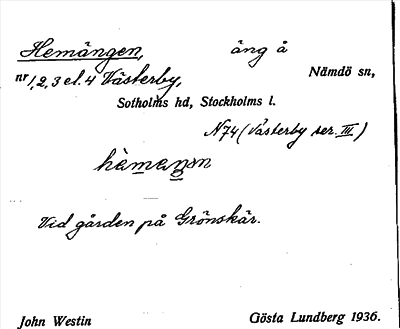 Hemängen, äng å
nr 1, 2, 3 el. 4 Västerby, Nämdö sn,
Sotholms hd, Stockholms l.
N74 (Västerby ser. III.)
Vid gården på Grönskär.
John Westin Gösta Lundberg 1936.